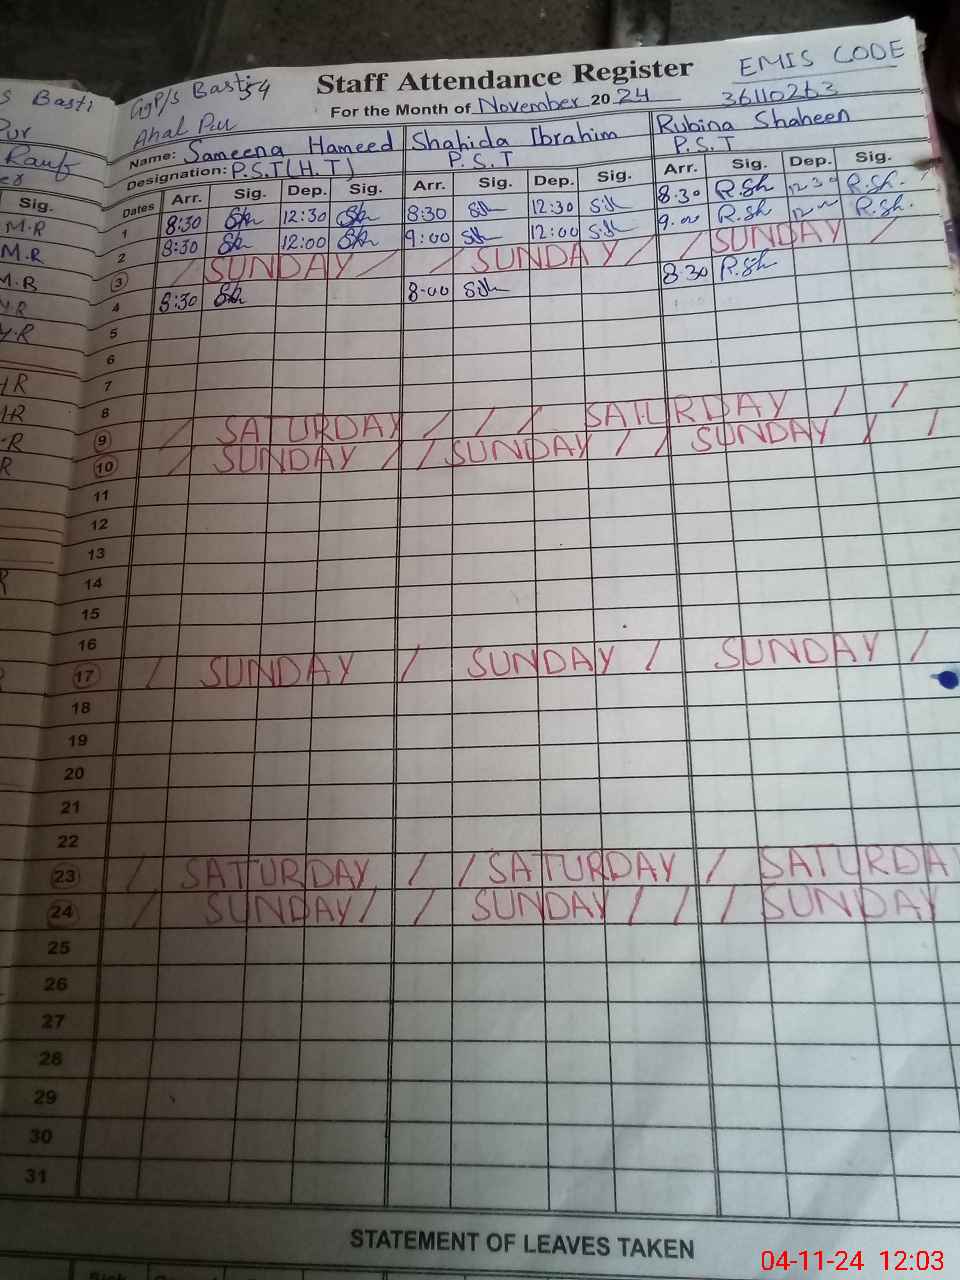 S Basti
GgP/S Basti 54
Staff Attendance Register
EMIS CODE
Ahal Pur
For the Month of November 2024
36110263
Pur
Rauf
Name: Sameena Hameed Shahida Ibrahim Rubina Shaheen
Designation: P.S.T(H.T) P.S.T P.S.T
Dates Arr. Sig. Dep. Sig. Arr. Sig. Dep. Sig. Arr. Sig. Dep. Sig.
Sig.
1 8:30 12:30 8:30 12:30 8:30 R.Sh 12:30 R.Sh.
M.R
2 8:30 12:00 9:00 12:00 9:00 R.Sh 12:00 R.Sh.
M.R
3 / SUNDAY / / SUNDAY / / SUNDAY /
M.R
4 8:30 8:00 8:30 R.Sh
Y.R
5
Y.R
6
7
R
8
R
9 / SATURDAY / / / SATURDAY / /
R
10 / SUNDAY / / SUNDAY / / SUNDAY / /
R
11
12
13
14
15
16
17 / SUNDAY / SUNDAY / SUNDAY /
18
19
20
21
22
23 / SATURDAY / / SATURDAY / SATURDA
24 / SUNDAY / / SUNDAY / / / SUNDAY
25
26
27
28
29
30
31
STATEMENT OF LEAVES TAKEN
04-11-24 12:03